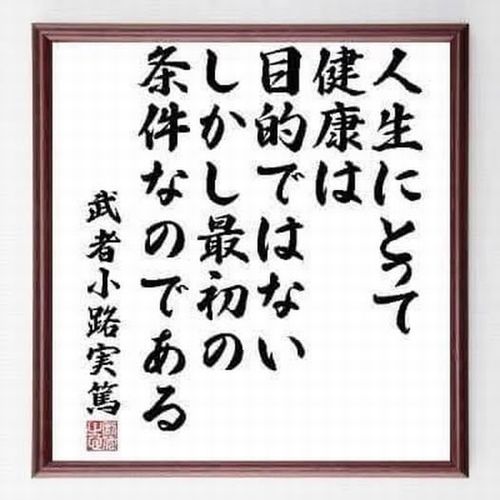 人生にとって
健康は
目的ではない
しかし最初の
条件なのである
武者小路実篤